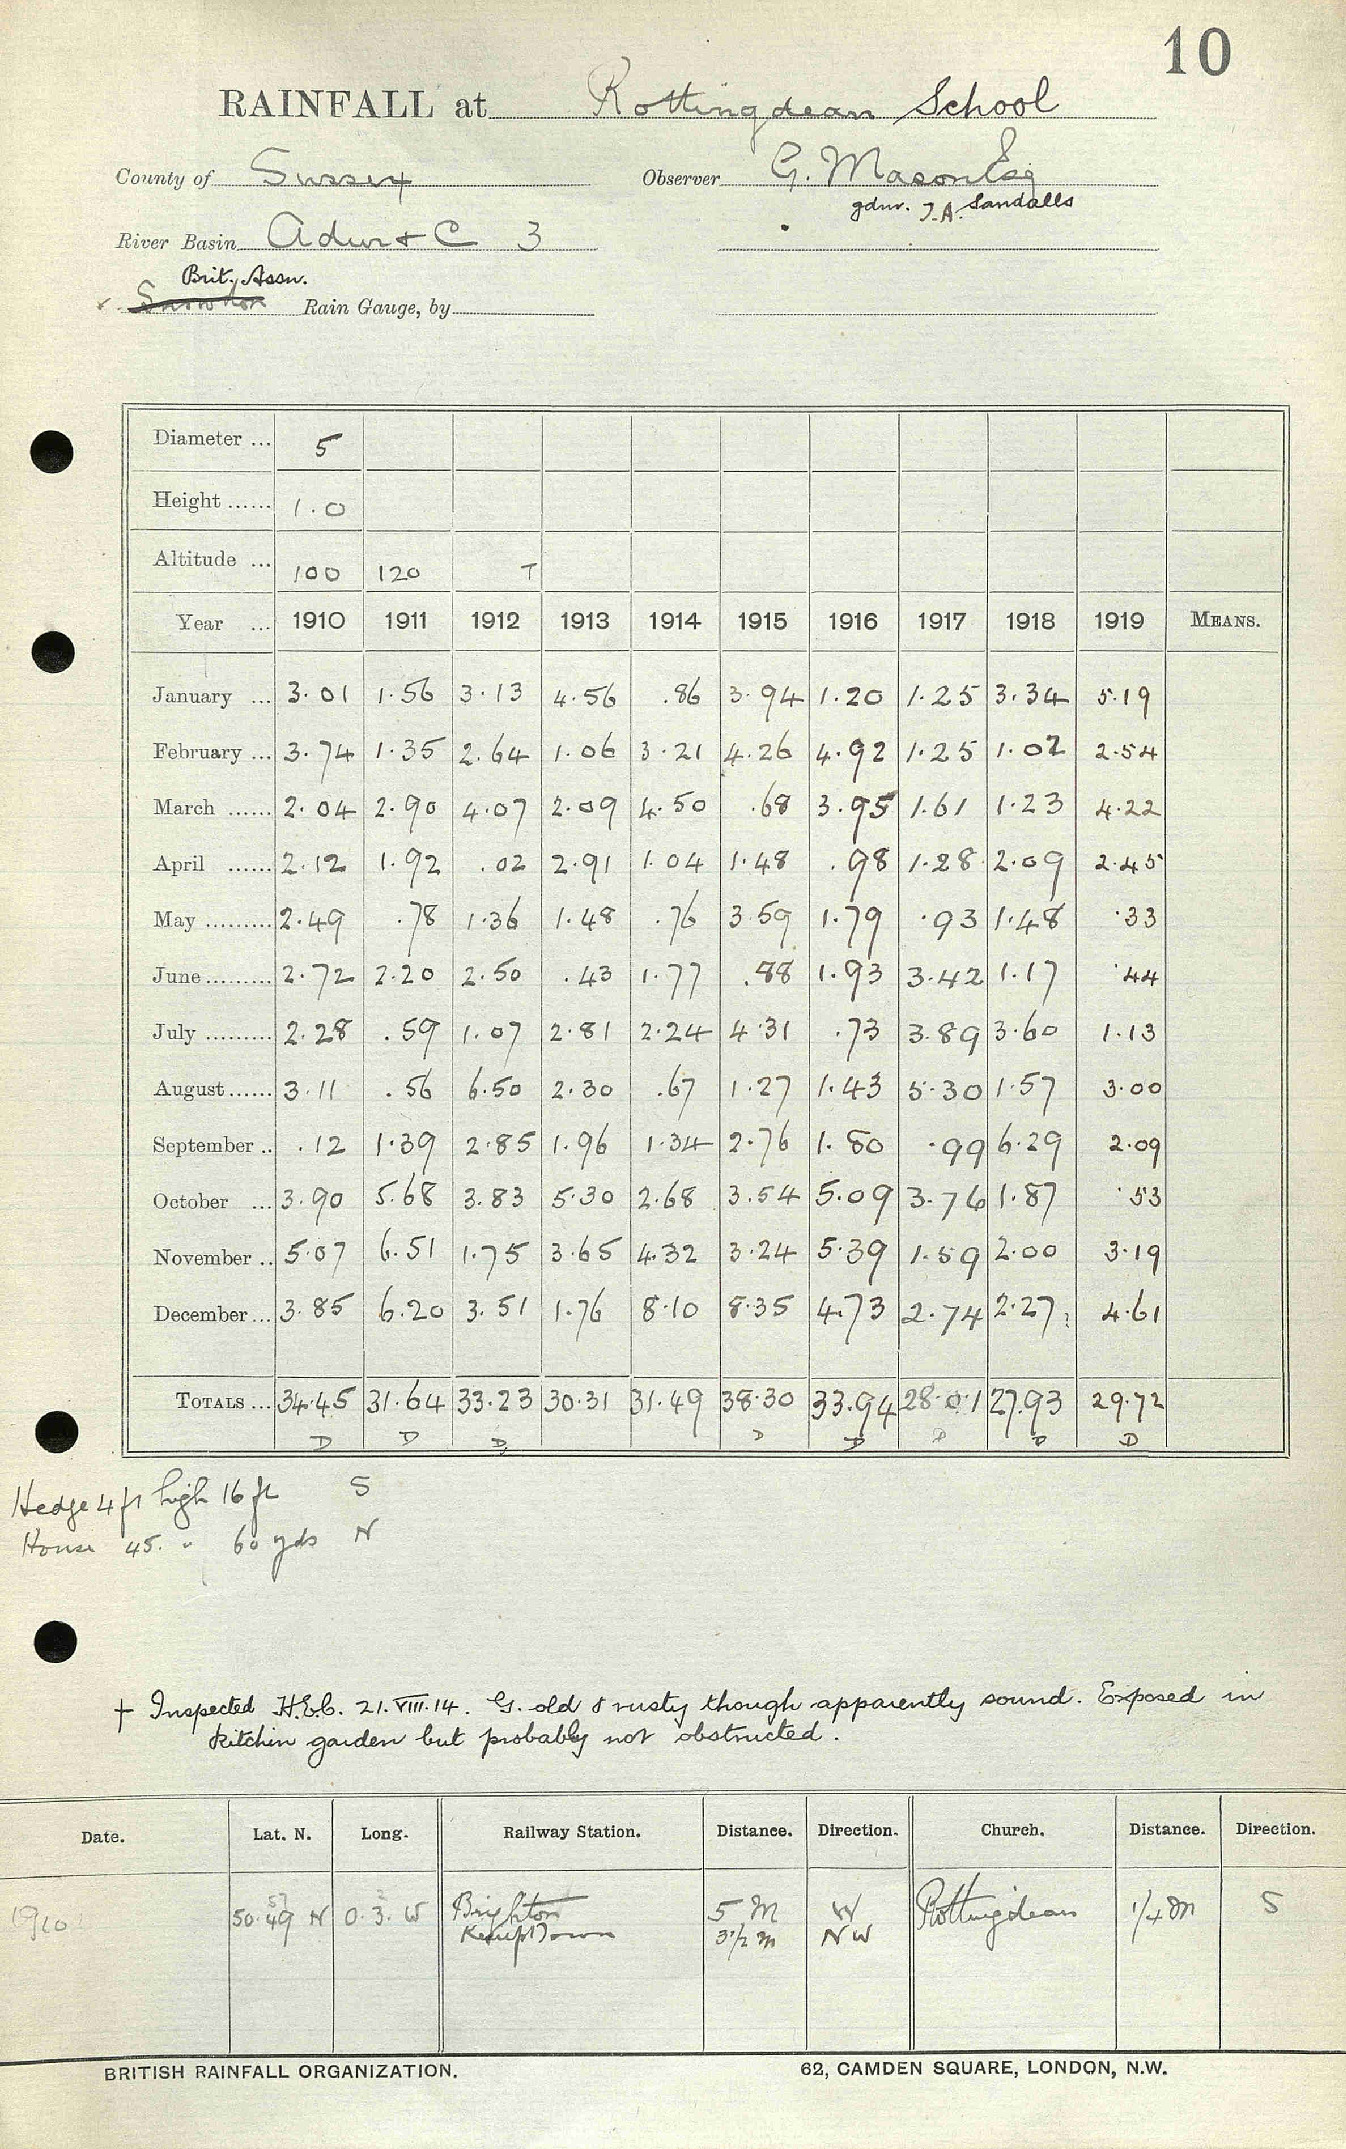 10
RAINFALL at Rottingdean School
County of Sussex Observer G. Mason Esq
gdnr. J.A. Sandalls
River Basin Adur & C 3
Brit. Assn.
Snowdon Rain Gauge, by
Diameter ... 5
Height ...... 1.0
Altitude ... 100 120 T
Year ... 1910 1911 1912 1913 1914 1915 1916 1917 1918 1919 MEANS.
January ... 3.01 1.56 3.13 4.56 .86 3.94 1.20 1.25 3.34 5.19
February ... 3.74 1.35 2.64 1.06 3.21 4.26 4.92 1.25 1.02 2.54
March ...... 2.04 2.90 4.07 2.09 4.50 .68 3.95 1.61 1.23 4.22
April ...... 2.12 1.92 .02 2.91 1.04 1.48 .98 1.28 2.09 2.45
May ......... 2.49 .78 1.36 1.48 .76 3.59 1.79 .93 1.48 .33
June ......... 2.72 2.20 2.50 .43 1.77 .88 1.93 3.42 1.17 .44
July ......... 2.28 .59 1.07 2.81 2.24 4.31 .73 3.89 3.60 1.13
August ...... 3.11 .56 6.50 2.30 .67 1.27 1.43 5.30 1.57 3.00
September .. .12 1.39 2.85 1.96 1.34 2.76 1.80 .99 6.29 2.09
October ... 3.90 5.68 3.83 5.30 2.68 3.54 5.09 3.76 1.87 .53
November .. 5.07 6.51 1.75 3.65 4.32 3.24 5.39 1.59 2.00 3.19
December ... 3.85 6.20 3.51 1.76 8.10 8.35 4.73 2.74 2.27 4.61
TOTALS ... 34.45 31.64 33.23 30.31 31.49 38.30 33.94 28.01 27.93 29.72
D D D D D D D D
Hedge 4 ft high 16 ft S
House 45. " 60 yds N
† Inspected H.E.C. 21.VIII.14. G. old & rusty though apparently sound. Exposed in
kitchin garden but probably not obstructed.
Date. Lat. N. Long. Railway Station. Distance. Direction. Church. Distance. Direction.
1910 50.49 N 0.3. W Brighton 5 M W Rottingdean 1/4 M S
Kemp Town 3 1/2 m NW
BRITISH RAINFALL ORGANIZATION. 62, CAMDEN SQUARE, LONDON, N.W.